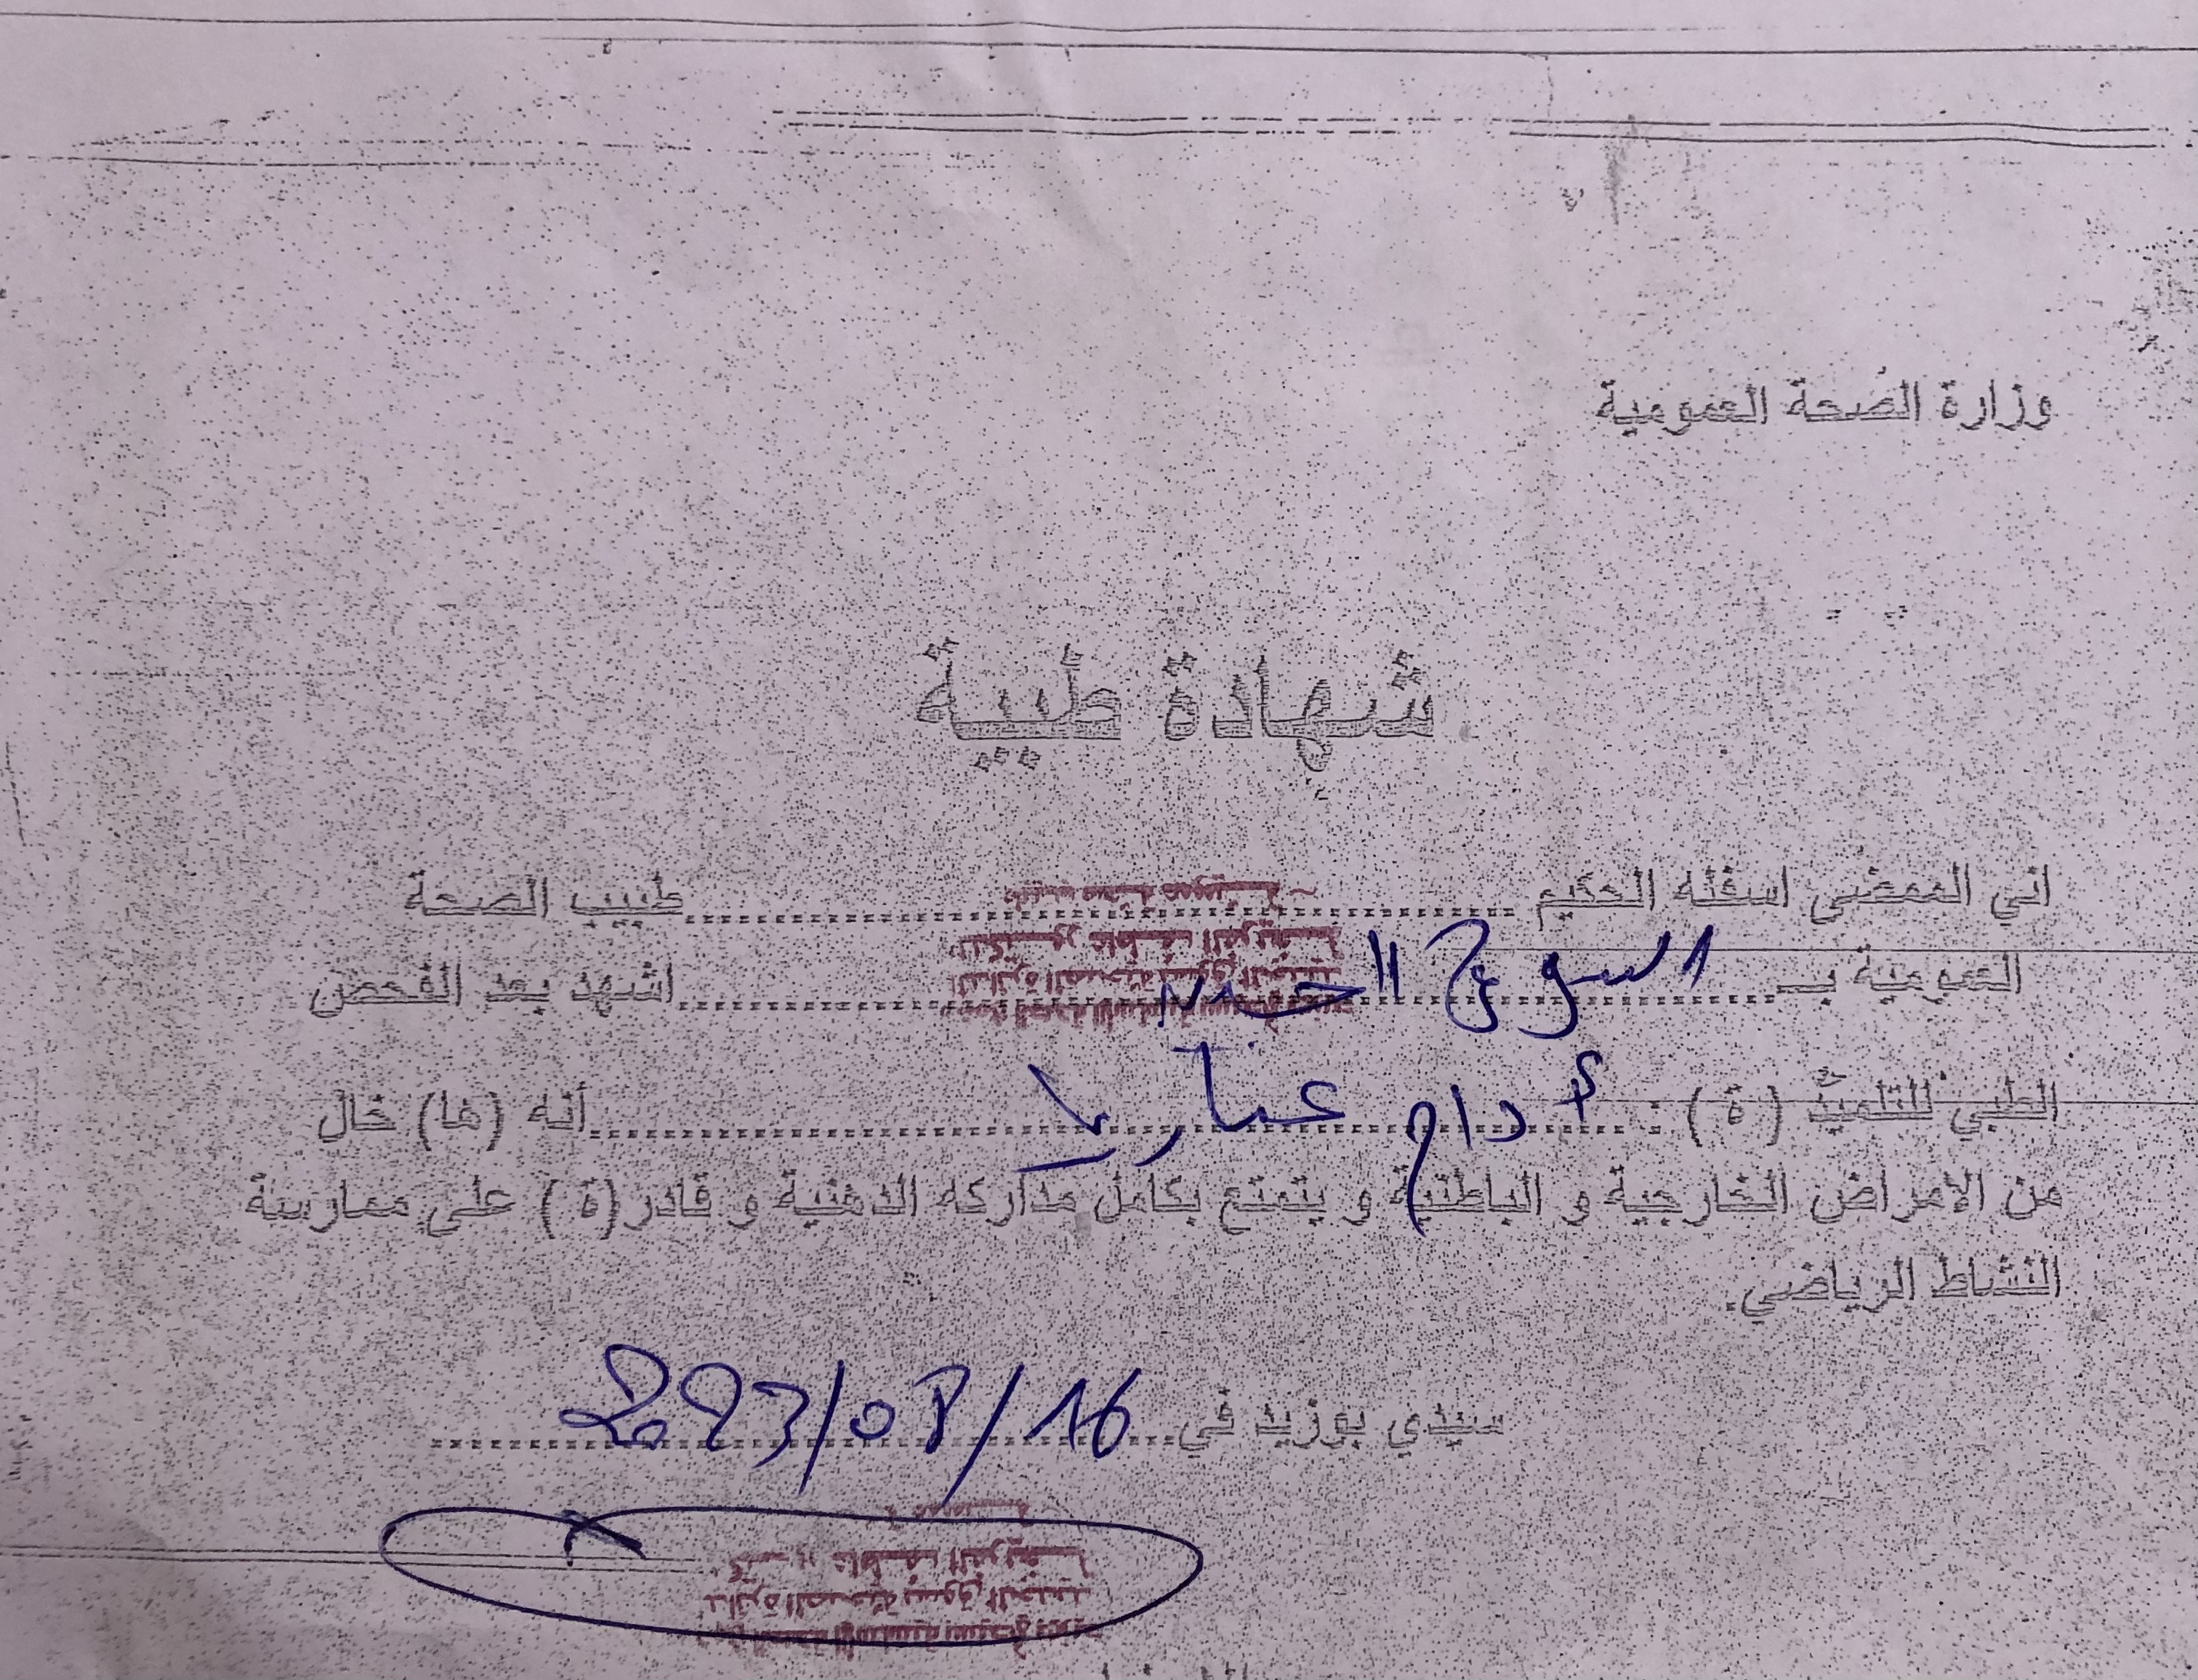 وزارة الصحة العمومية
شهادة طبية
اني الممضي اسفله الحكيم ........ طبيب الصحة
العمومية بـ ..... السوق الجديد ..... اشهد بعد الفحص
الطبي للتلميذ ( ة ) : أدام عماري ..... أنه (ها) خال
من الامراض الخارجية و الباطنية و يتمتع بكامل مداركه الذهنية و قادر(ة ) على ممارسة
النشاط الرياضي.
سيدي بوزيد في 2023/08/16